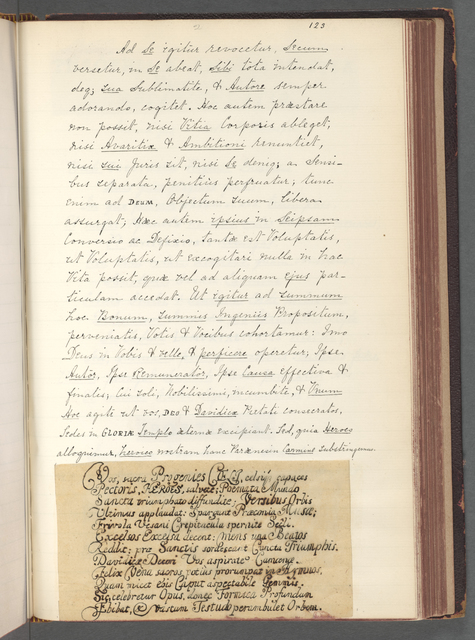 123
Ad Se igitur revocetur, Secum
versetur, in Se abeat, Sibi tota intendat,
deq; sua Sublimitate, & Autore semper
adorando, cogitet. Hoc autem præstare
non possit, nisi Vitia Corporis ableget;
nisi Avaritiæ & Ambitioni renuntiet,
nisi sui Juris sit, nisi Se deniq; a Sensi-
bus separata, penitius perfruatur; tunc
enim ad DEUM, Objectum suum, libera
assurgat; Hæc autem ipsius in Seipsam
Conversio ac Defixio, tantæ est Voluptatis,
ut Voluptatis, ut excogitari nulla in hac
Vita possit, quæ vel ad aliquam ejus par-
ticulam accedat. Ut igitur ad summum
hoc Bonum, summis Ingeniis Propositum,
perveniatis, Votis & Vocibus cohortamur: Imo
Deus in Vobis & velle, & perficere operetur, Ipse
Autor, Ipse Remunerator, Ipse Causa effectiva &
finales; Cui soli, Nobilissimi, incumbite, & Unum
Hoc agite ut vos, DEO & Davidicæ Pietate consecratos,
Sedes in GLORIÆ Templo æternæ excipiant. Sed, quia Heroes
alloquimur, heroeo nostram hanc Parænesin Carmine Substringimus.
Vos, sacra Progenies celsiq capaces
Pectoris, HEROES, salvete; Poemata Mundo
Sancta triumphato diffundite; Versibus Orbis
Ultimus applaudat: Spargant Præconia Musæ;
Frivola Vesani Crepitacula spernite Secli.
Excelsos Excelsa decent; mons una Beatos
Reddit; præ Sanctis sordescant Cuncta Triumphis.
Davidicæ Decori Vos aspirate Camœnæ.
Felix Vena sacros potius prorumpat in Hymnos,
Quam micet ebia Caput aspectabile Gemmis.
Sic celebretur Opus, donec Formica Profundum
Ebibat, & vastum Testudo perambulet Orbem.